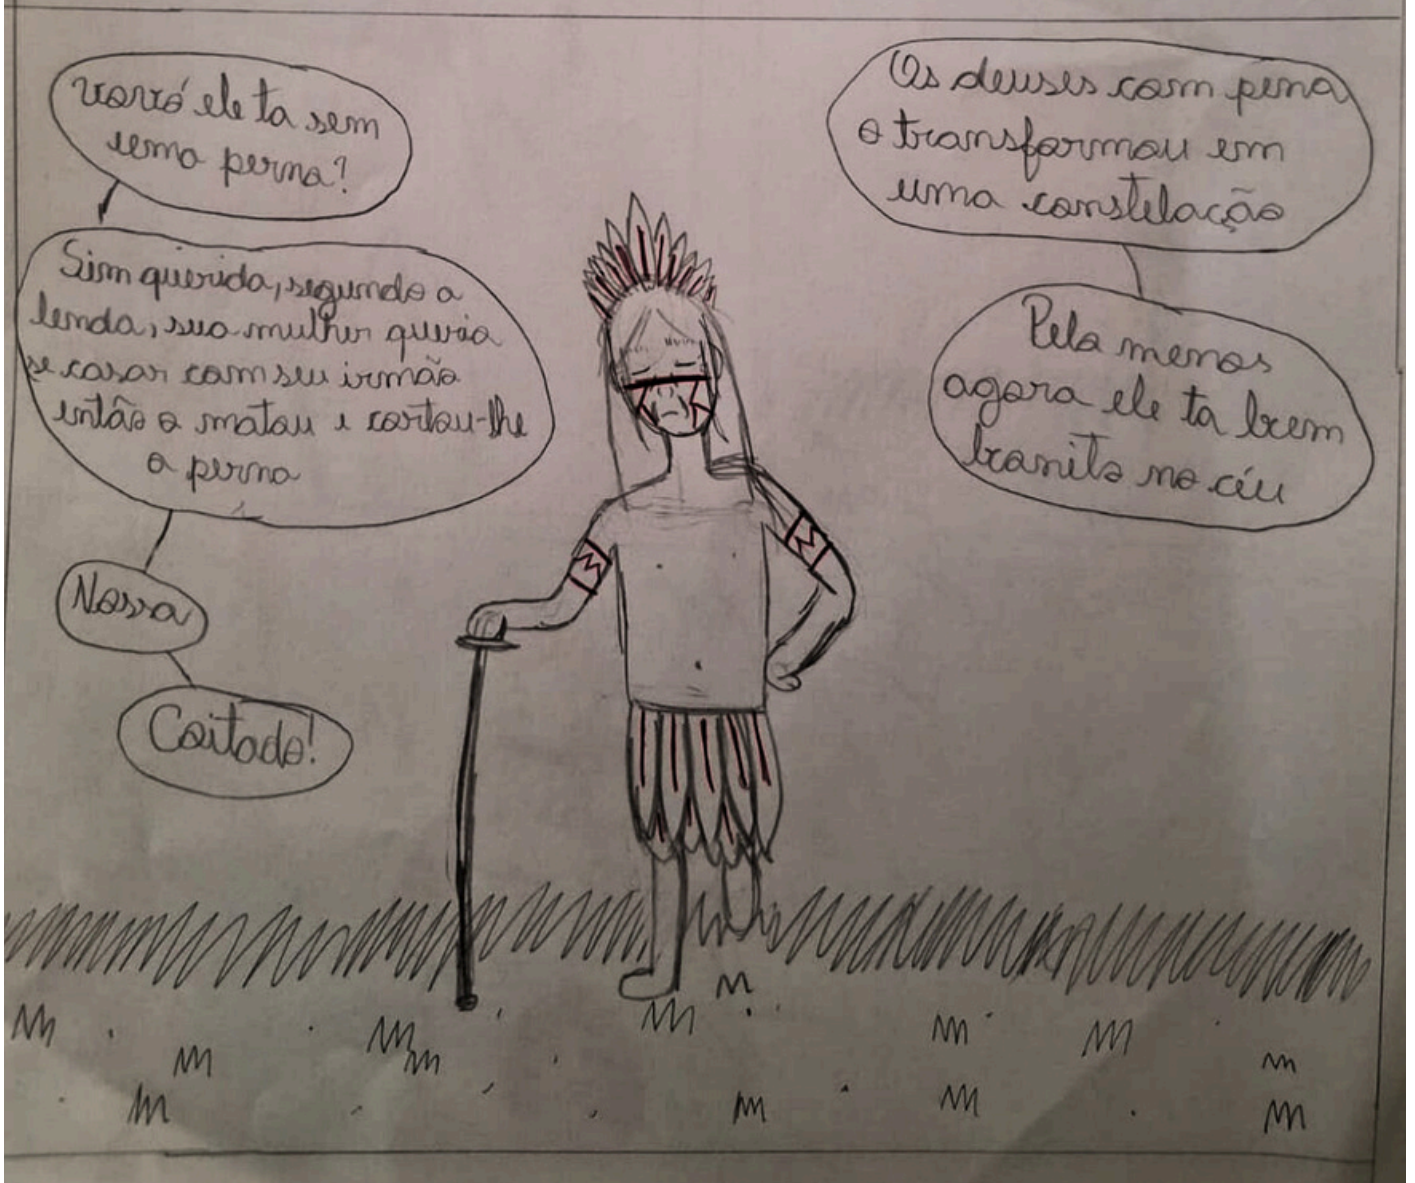 vovó ele ta sem
uma perna?
Sim querida, segundo a
lenda, sua mulher queria
se casar com seu irmão
então o matou e cortou-lhe
a perna
Nossa
Coitado!
Os deuses com pena
o transformou em
uma constelação
Pelo menos
agora ele ta bem
bonito no céu